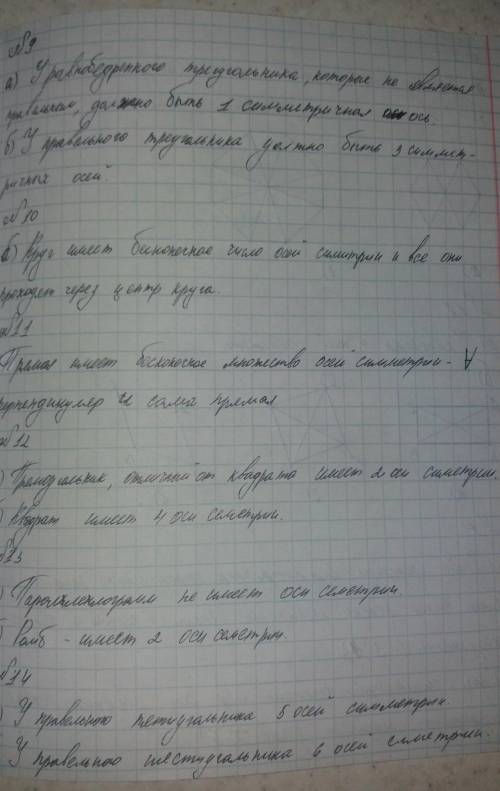 №9
а) У равнобедренного треугольника, которые не является
правильным, должно быть 1 симметричная ось.
б) У правельного треугольника должно быть 3 симмет-
ричных осей.
№10
б) Круг имеет бесконосное число осей симитрии и все они
проходят через центр круга.
№11
Прямая имеет бесконосное множество осей симметрии - ∀
перпендикуляр и сама прямая
№12
) Прямоугольник, отличный от квадрата имеет 2 оси симетрии.
) Квадрат имеет 4 оси семетрии.
№13
) Параллелограмм не имеет оси семетрии.
Ромб - имеет 2 оси семетрии.
№14
) У правельного пятиугольника 5 осей симметрии
У правельного шестиугольника 6 осей симетрии.